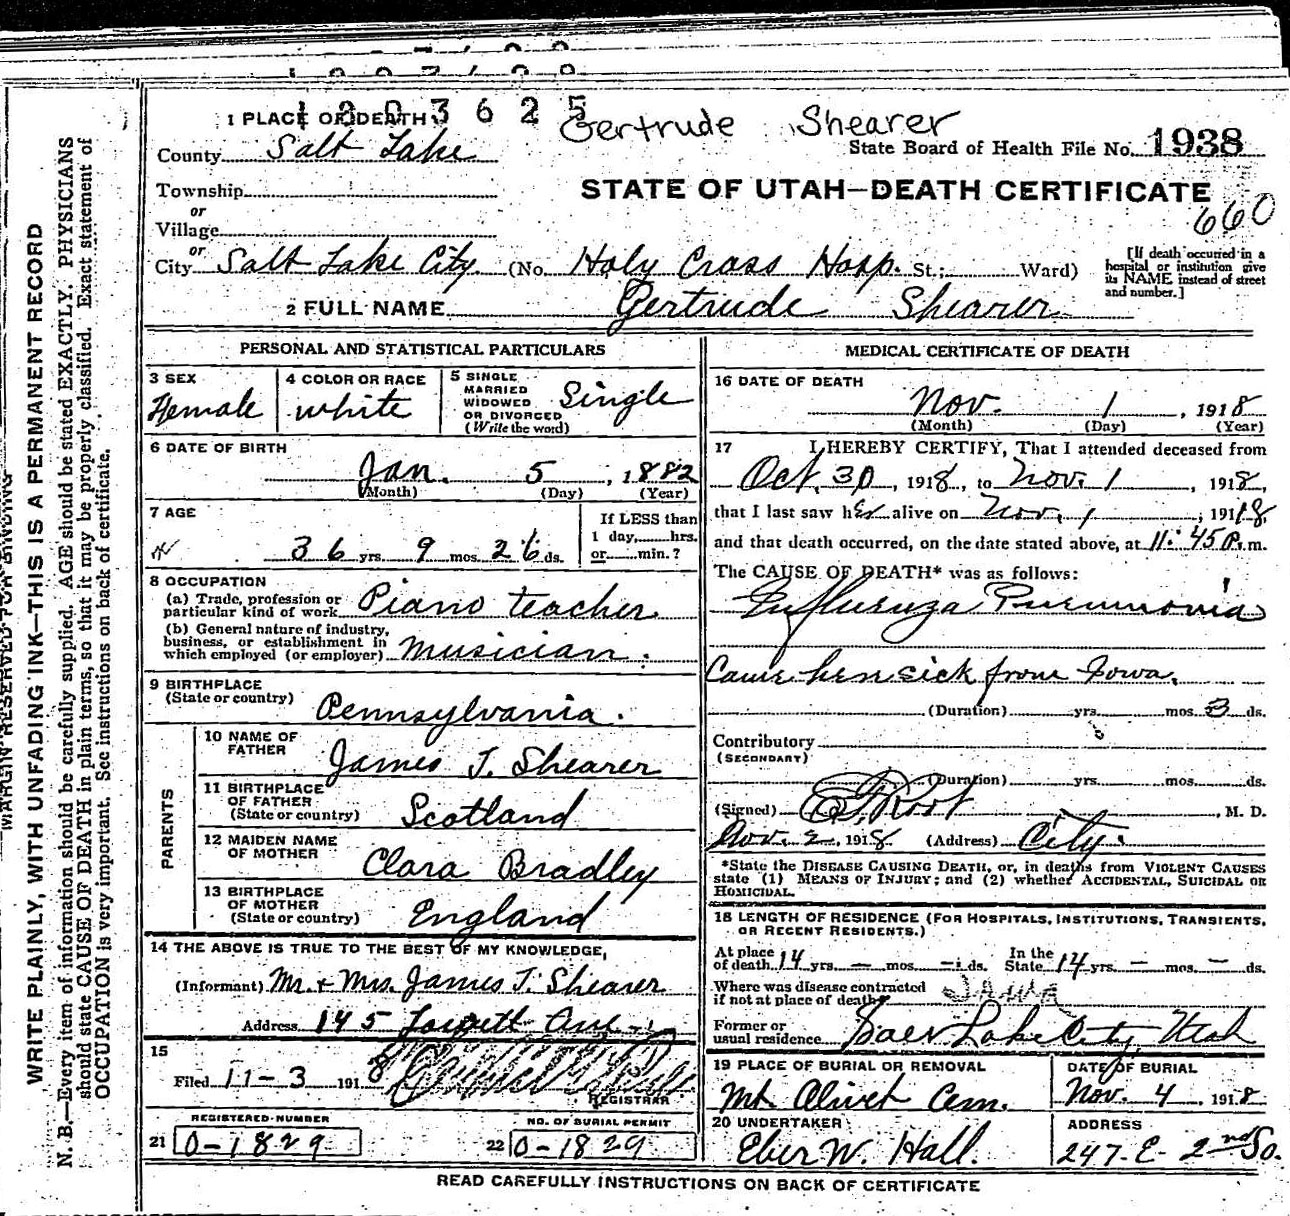 1203625
Gertrude Shearer
1 PLACE OF DEATH
County Salt Lake
State Board of Health File No. 1938
Township
STATE OF UTAH—DEATH CERTIFICATE
660
or
Village
or
City Salt Lake City (No. Holy Cross Hosp. St.; Ward)
[If death occurred in a hospital or institution give its NAME instead of street and number.]
2 FULL NAME Gertrude Shearer
PERSONAL AND STATISTICAL PARTICULARS
3 SEX
Female
4 COLOR OR RACE
white
5 SINGLE
MARRIED
WIDOWED
OR DIVORCED
(Write the word)
Single
6 DATE OF BIRTH
Jan. 5, 1882
(Month) (Day) (Year)
7 AGE
36 yrs. 9 mos. 26 ds.
If LESS than
1 day, hrs.
or min. ?
8 OCCUPATION
(a) Trade, profession or
particular kind of work Piano teacher
(b) General nature of industry,
business, or establishment in
which employed (or employer) musician.
9 BIRTHPLACE
(State or country) Pennsylvania.
PARENTS
10 NAME OF
FATHER James T. Shearer
11 BIRTHPLACE
OF FATHER
(State or country) Scotland
12 MAIDEN NAME
OF MOTHER Clara Bradley
13 BIRTHPLACE
OF MOTHER
(State or country) England
14 THE ABOVE IS TRUE TO THE BEST OF MY KNOWLEDGE,
(Informant) Mr. + Mrs. James T. Shearer
Address 145 Ave
15
Filed 11-3 1918
REGISTRAR
REGISTERED NUMBER
21 0-1829
NO. OF BURIAL PERMIT
22 0-1829
MEDICAL CERTIFICATE OF DEATH
16 DATE OF DEATH
Nov. 1, 1918
(Month) (Day) (Year)
17 I HEREBY CERTIFY, That I attended deceased from
Oct. 30, 1918, to Nov. 1 1918,
that I last saw her alive on Nov. 1, 1918,
and that death occurred, on the date stated above, at 11:45 P. m.
The CAUSE OF DEATH* was as follows:
Influenza Pneumonia
Came here sick from Iowa.
(Duration) yrs. mos. 3 ds.
Contributory
(SECONDARY)
(Duration) yrs. mos. ds.
(Signed) Root, M. D.
Nov. 2, 1918 (Address) City.
*State the DISEASE CAUSING DEATH, or, in deaths from VIOLENT CAUSES
state (1) MEANS OF INJURY; and (2) whether ACCIDENTAL, SUICIDAL OR
HOMICIDAL.
18 LENGTH OF RESIDENCE (FOR HOSPITALS, INSTITUTIONS, TRANSIENTS,
OR RECENT RESIDENTS.)
At place
of death 14 yrs. — mos. — ds.
In the
State 14 yrs. — mos. — ds.
Where was disease contracted
if not at place of death? Iowa
Former or
usual residence Salt Lake City, Utah
19 PLACE OF BURIAL OR REMOVAL
Mt. Olivet Cem.
DATE OF BURIAL
Nov. 4, 1918
20 UNDERTAKER
Eber W. Hall.
ADDRESS
247-E-2nd So.
READ CAREFULLY INSTRUCTIONS ON BACK OF CERTIFICATE
MARGIN RESERVED FOR BINDING
WRITE PLAINLY, WITH UNFADING INK—THIS IS A PERMANENT RECORD
N. B.—Every item of information should be carefully supplied. AGE should be stated EXACTLY. PHYSICIANS
should state CAUSE OF DEATH in plain terms, so that it may be properly classified. Exact statement of
OCCUPATION is very important. See instructions on back of certificate.